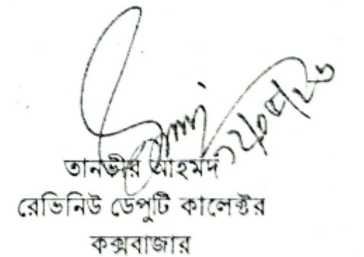 তানভীর আহমদ
রেভিনিউ ডেপুটি কালেক্টর
কক্সবাজার